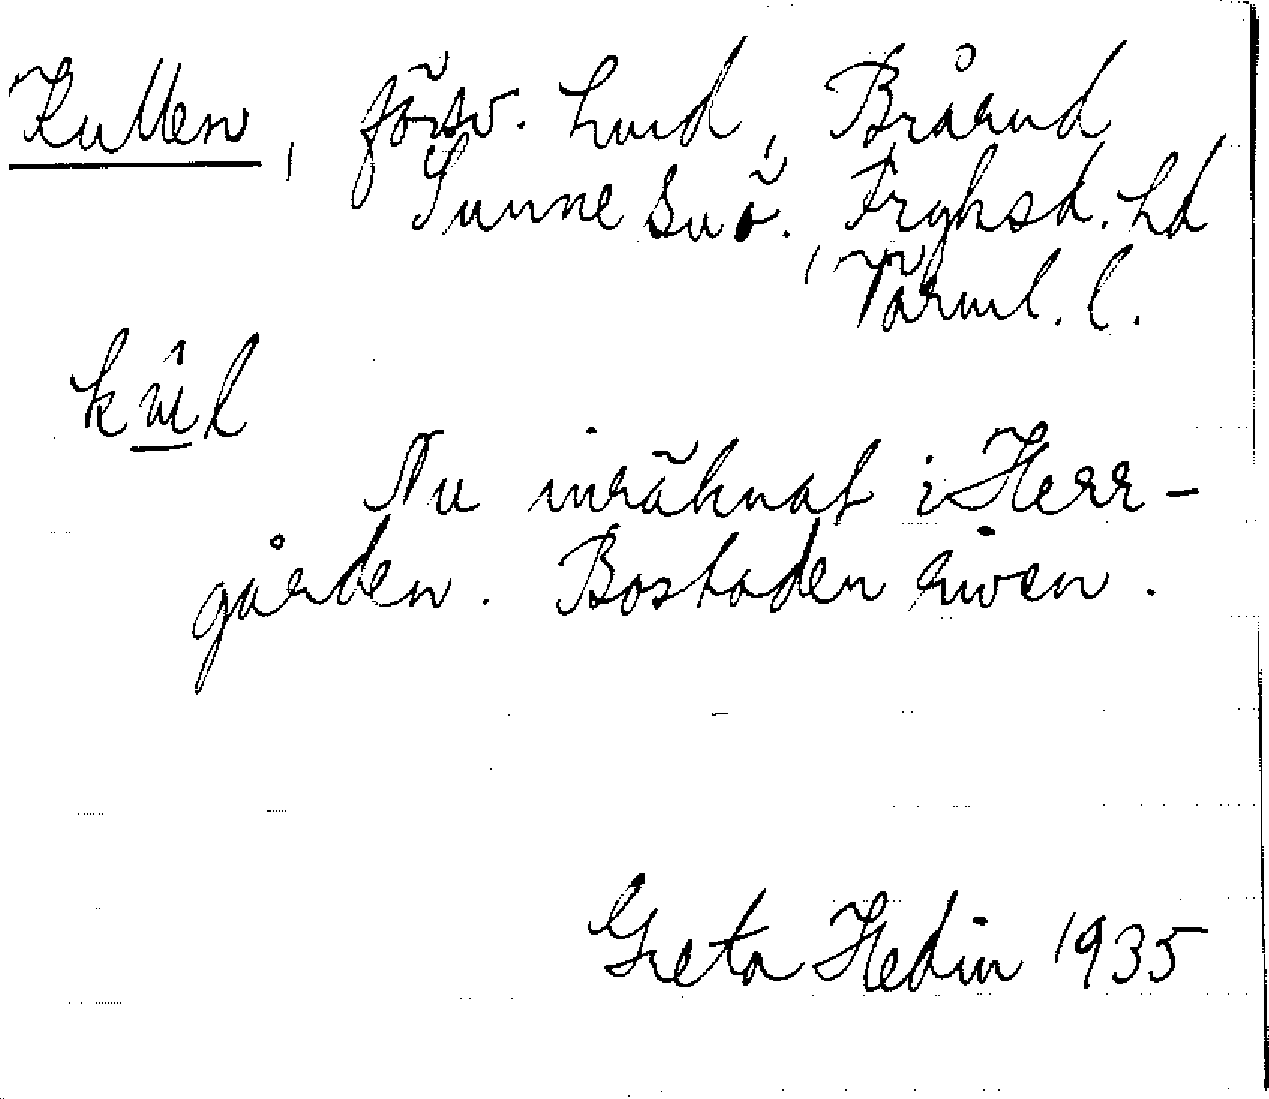 Kullen, försv. hmd, Brårud
Sunne sn ö. Fryksd. hd
, Värml. l.
kûl
Nu inräknat i Herr-
gården. Bostaden riven.
Greta Hedin 1935